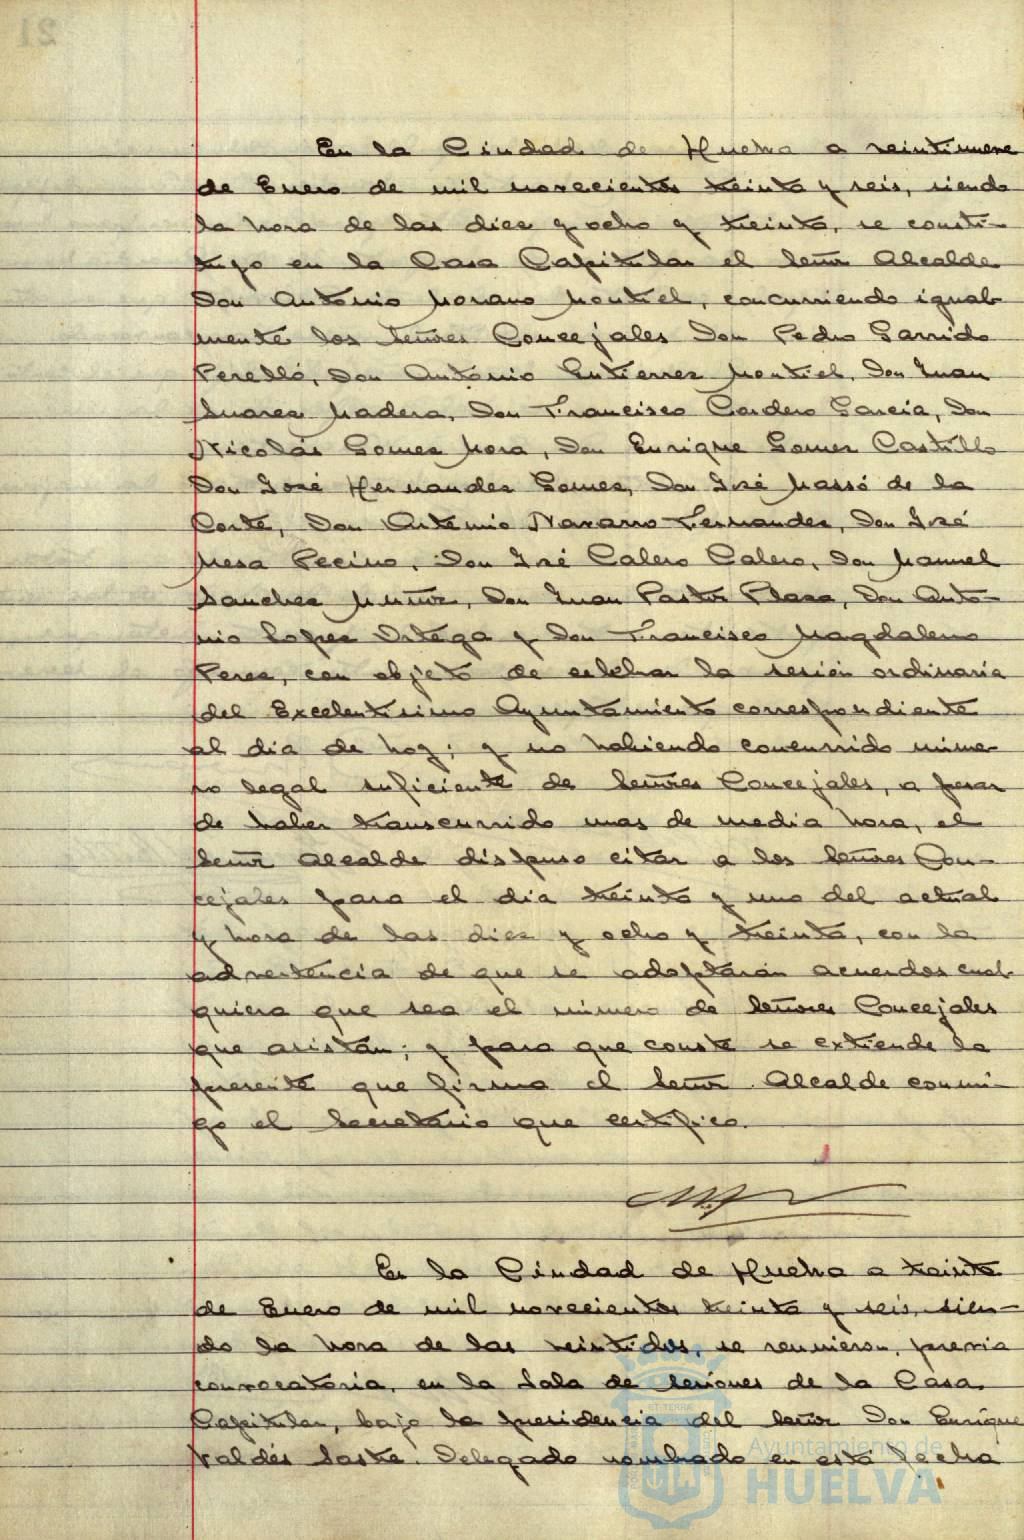 En la Ciudad de Huelva a veintinueve
de Enero de mil novecientos treinta y seis, siendo
la hora de las diez y ocho y treinta, se consti-
tuyo en la Casa Capitular el Señor Alcalde
Don Antonio Moreno Montiel, concurriendo igual-
mente los Señores Concejales Don Pedro Garrido
Perelló, Don Antonio Gutierrez Montiel, Don Juan
Suarez Madera, Don Francisco Cordero Garcia, Don
Nicolás Gomez Mora, Don Enrique Gomez Castillo
Don José Hernandez Gomez, Don José Massó de la
Corte, Don Antonio Navarro Fernandez, Don José
Mesa Pecino, Don José Calero Calero, Don Manuel
Sanchez Muñoz, Don Juan Pastor Plaza, Don Anto-
nio Lopez Ortega y Don Francisco Magdaleno
Perez, con objeto de celebrar la sesión ordinaria
del Excelentisimo Ayuntamiento correspondiente
al dia de hoy; y no habiendo concurrido nume-
ro legal suficiente de Señores Concejales, a pesar
de haber transcurrido mas de media hora, el
Señor Alcalde dispuso citar a los Señores Con-
cejales para el dia treinta y uno del actual
y hora de las diez y ocho y treinta, con la
advertencia de que se adoptarán acuerdos cual-
quiera que sea el número de Señores Concejales
que asistan; y para que conste se extiende la
presente que firma el Señor Alcalde conmi-
go el Secretario que certifico.
En la Ciudad de Huelva a treinta
de Enero de mil novecientos treinta y seis, sien-
do la hora de las veintidos, se reunieron, previa
convocatoria, en la Sala de Sesiones de la Casa
Capitular, bajo la presidencia del Señor Don Enrique
Valdés Sastre, Delegado nombrado en esta fecha
Ayuntamiento de
HUELVA